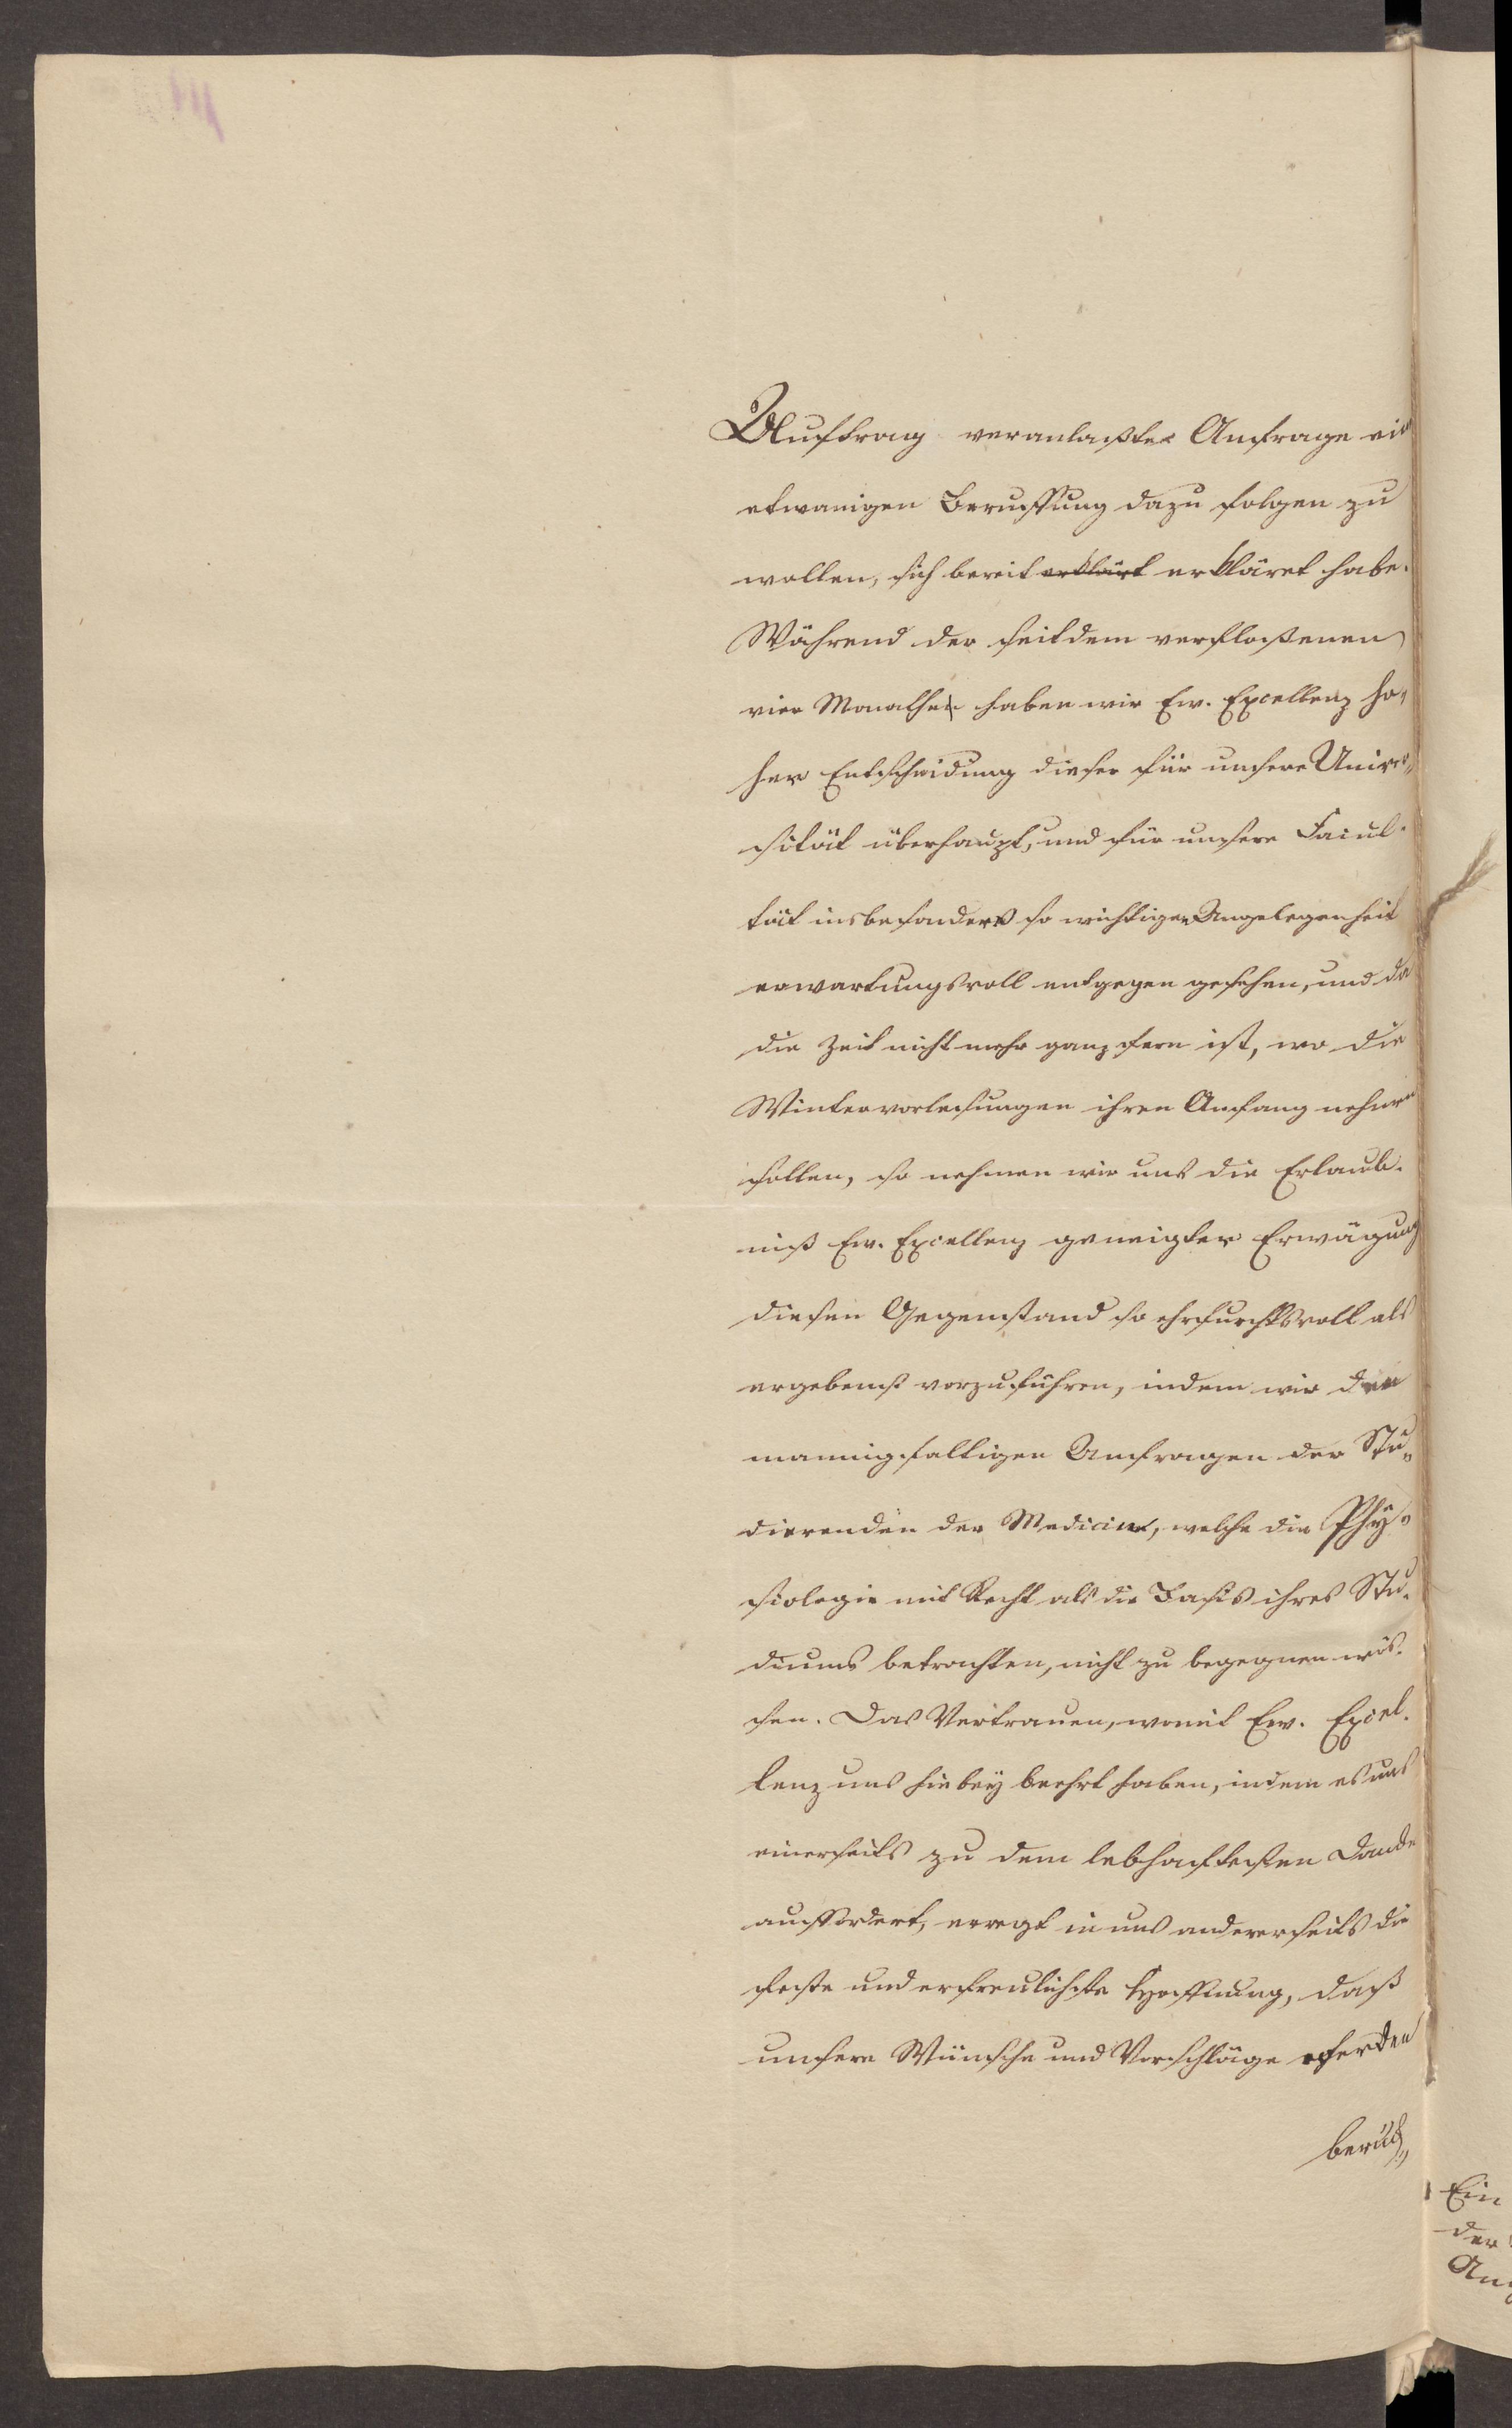 Auftrag veranlaßter Anfrage ein
etwanigen Beruffung dazu folgen zu
wollen, sich bereit erklärt erkläret habe.
Während der seitdem verfloßenen
vier Monathe haben wir Ew. Excellenz ho„
her Entscheidung dieser für unsere Univer„
sität überhaupt, und für unsere Facul-
tät insbesondere so wichtigen Angelegenheit
erwartungsvoll entgegen gesehen, und da
die Zeit nicht mehr ganz fern ist, wo die
Wintervorlesungen ihren Anfang nehmen
sollen, so nehmen wir uns die Erlaub-
niß Ew. Excellenz geneigter Erwägung
diesen Gegenstand so ehrfurchtsvoll als
ergebenst vorzuführen, indem wir den
mannigfaltigen Anfragen der Stu„
dierenden der Medicin, welche die Phy„
siologie mit Recht als die Basis ihres Stu-
diums betrachten, nicht zu begegnen wis-
sen. Das Vertrauen, womit Ew. Excel-
lenz uns hiebey beehrt haben, indem es uns
einerseits zu dem lebhaftesten Danke
auffordert, erregt in uns andererseits die
feste und erfreulichste Hoffnung, daß
unsere Wünsche und Vorschläge werden
berück„
Ein
der